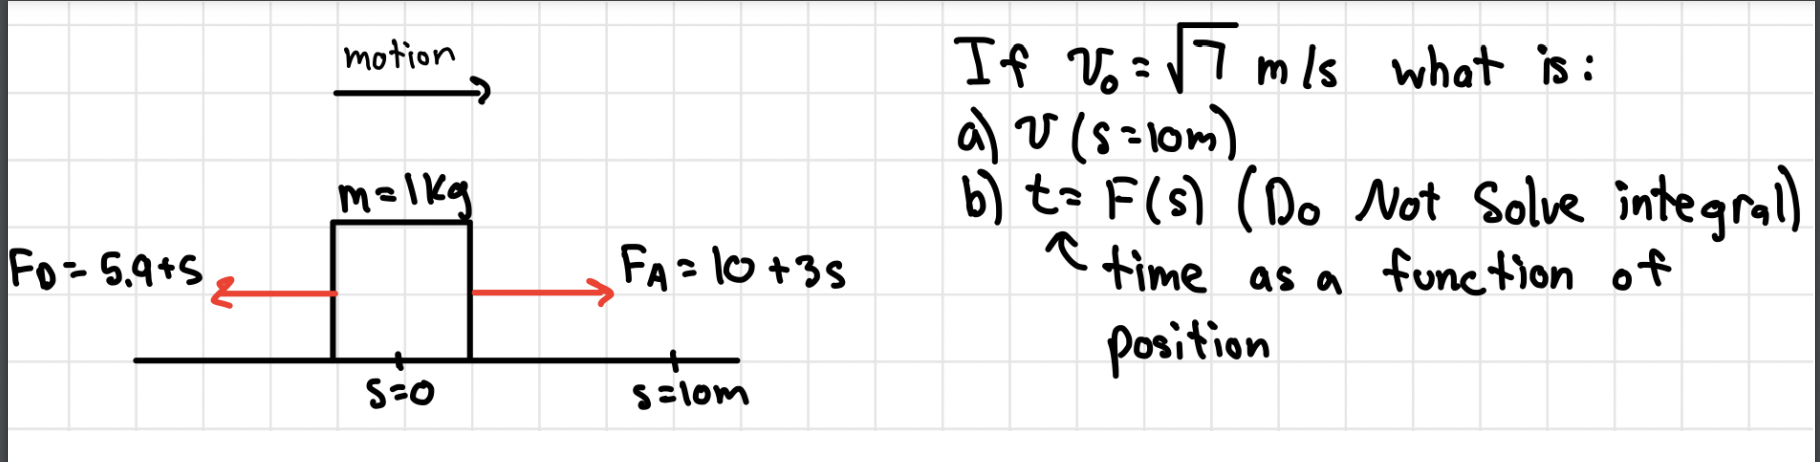 motion
m=1kg
F_D = 5.9+s
F_A = 10 + 3s
s=0
s=10m
If v₀ = √7 m/s what is:
a) v (s=10m)
b) t= F(s) (Do Not Solve integral)
time as a function of
position